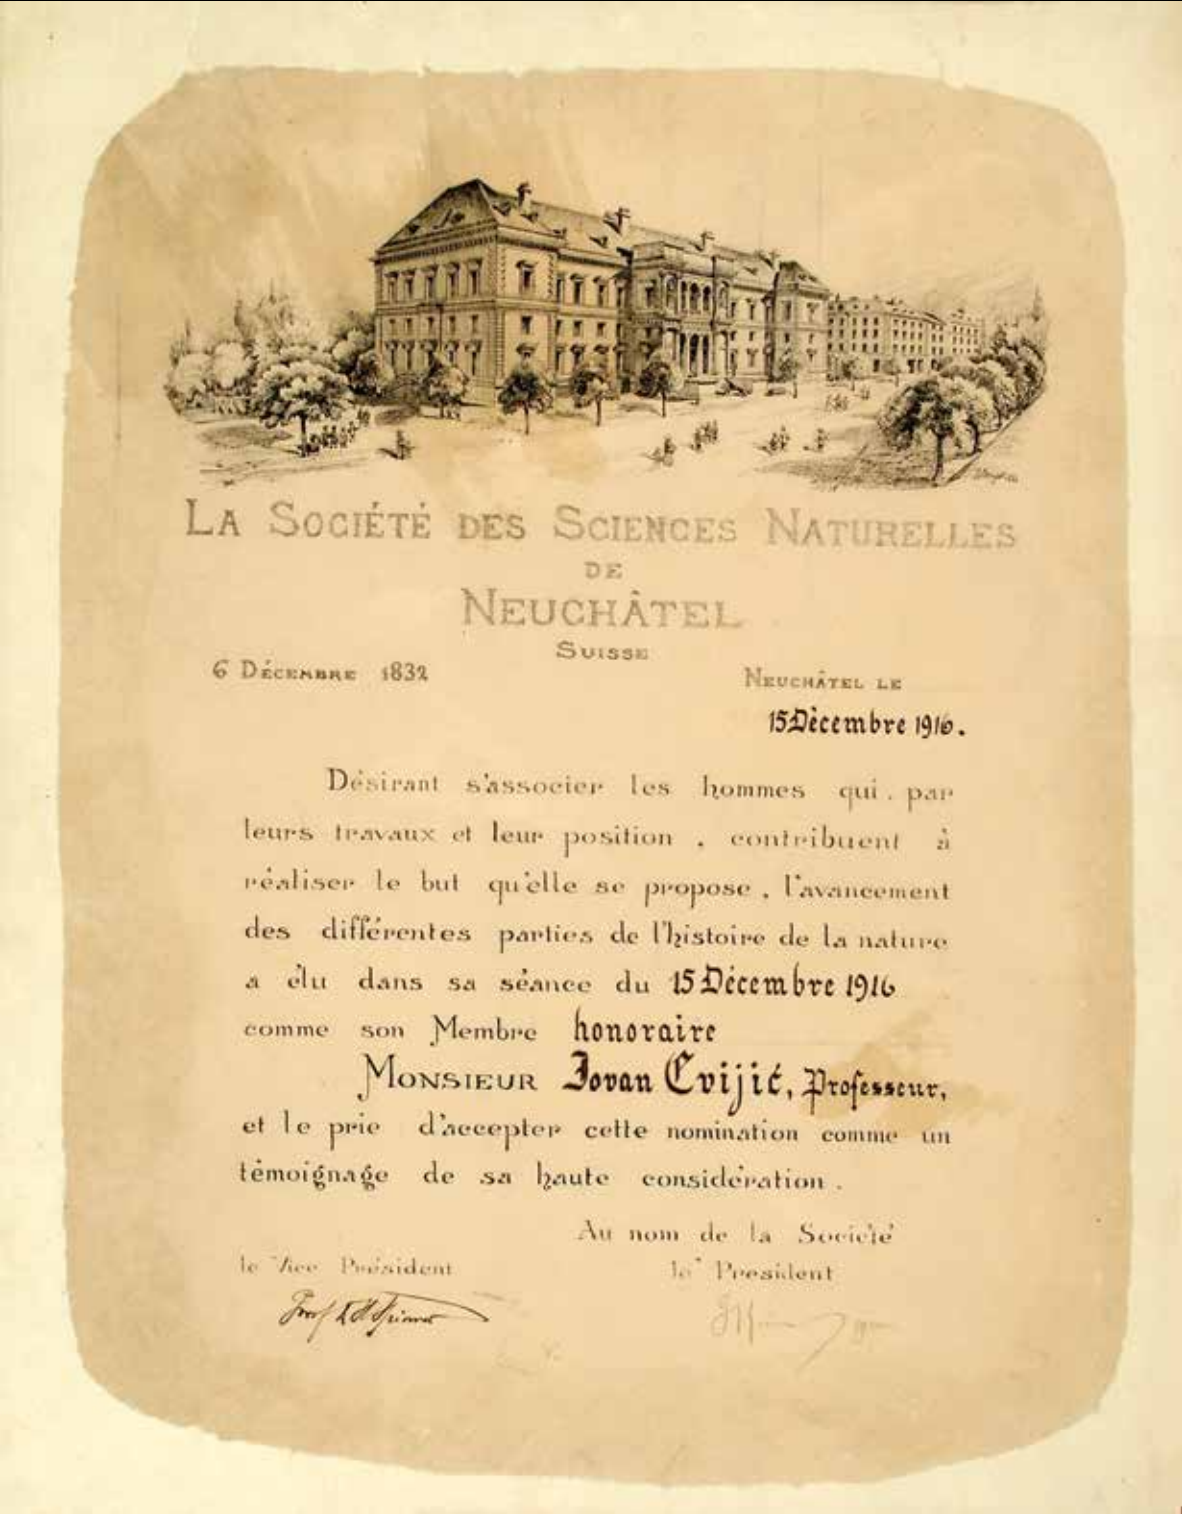 LA SOCIÉTÉ DES SCIENCES NATURELLES
DE
NEUCHÂTEL
SUISSE
6 DÉCEMBRE 1832
NEUCHÂTEL LE
15 Décembre 1916.
Désirant s'associer les hommes qui, par
leurs travaux et leur position, contribuent à
réaliser le but qu'elle se propose, l'avancement
des différentes parties de l'histoire de la nature
a élu dans sa séance du 15 Décembre 1916
comme son Membre honoraire
MONSIEUR Jovan Cvijić, Professeur,
et le prie d'accepter cette nomination comme un
témoignage de sa haute considération.
Au nom de la Société
le Vice Président
le Président
Prof